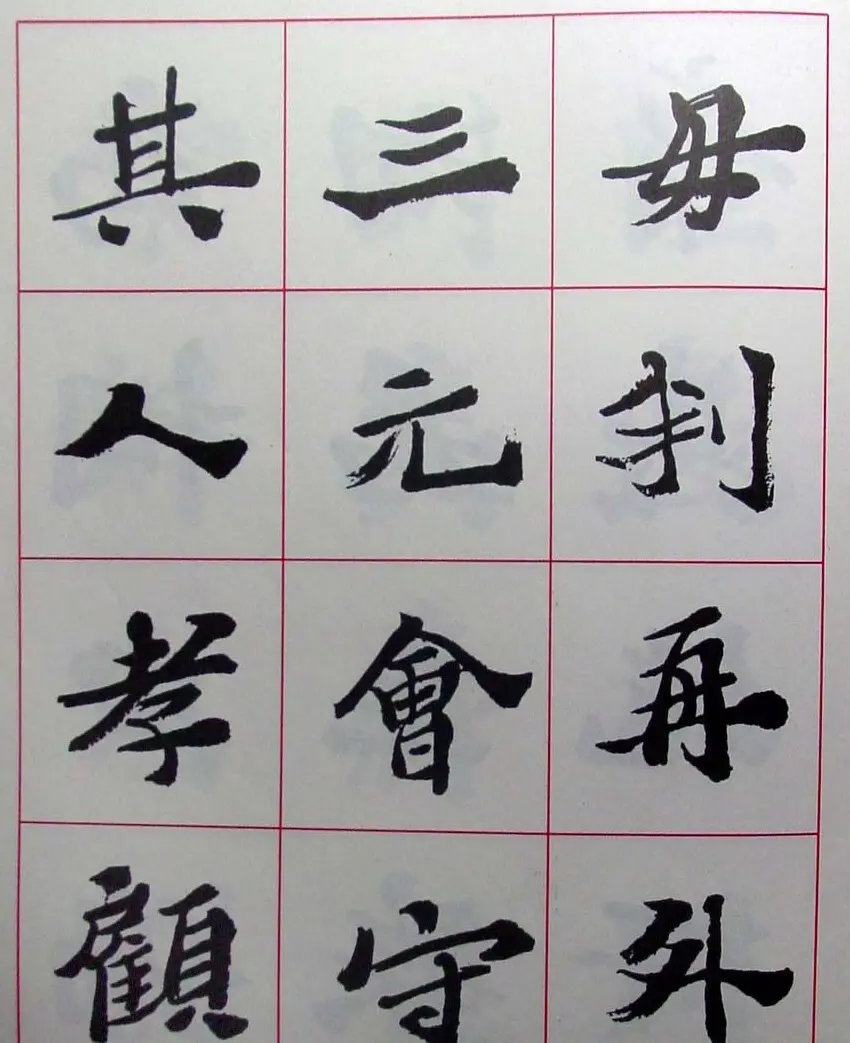 毋判再外
三元會守
其人孝顧